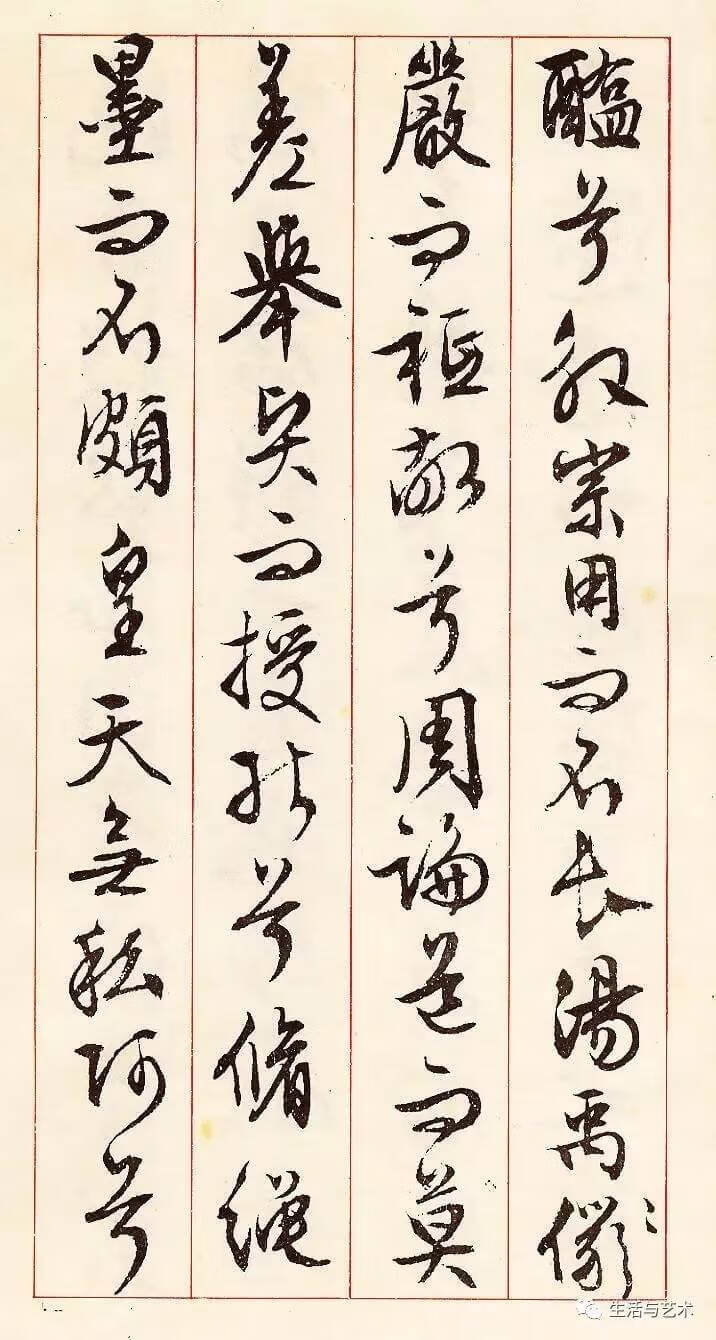 醢兮殷宗用而不長湯禹儼
嚴而祗敬兮周論道而莫
差舉賢而授能兮脩繩
墨而不頗皇天無私阿兮
生活与艺术